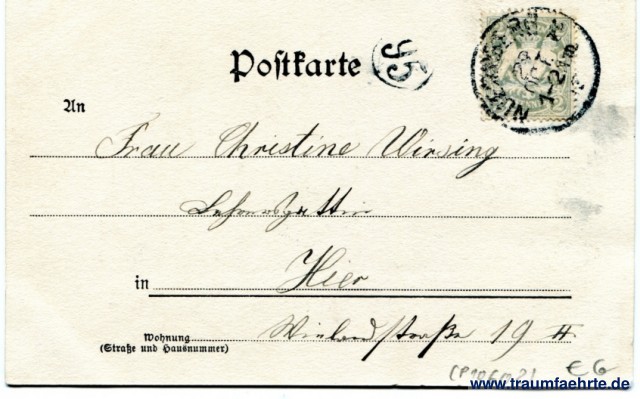 Postkarte
95
NÜRNBERG 2
An
Frau Christine Wirsing
in Hier
Wielandstraße 19 II
Wohnung
(Straße und Hausnummer)
€ 6
www.traumfaehrte.de